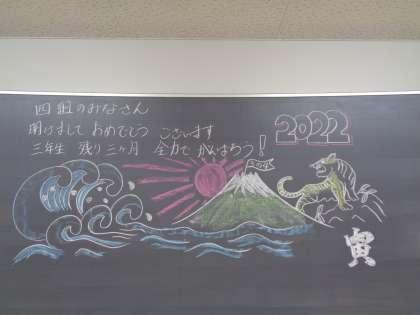 四組のみなさん
明けまして おめでとう ございます
三年生 残り三ヶ月 全力で がんばろう!
2022
寅